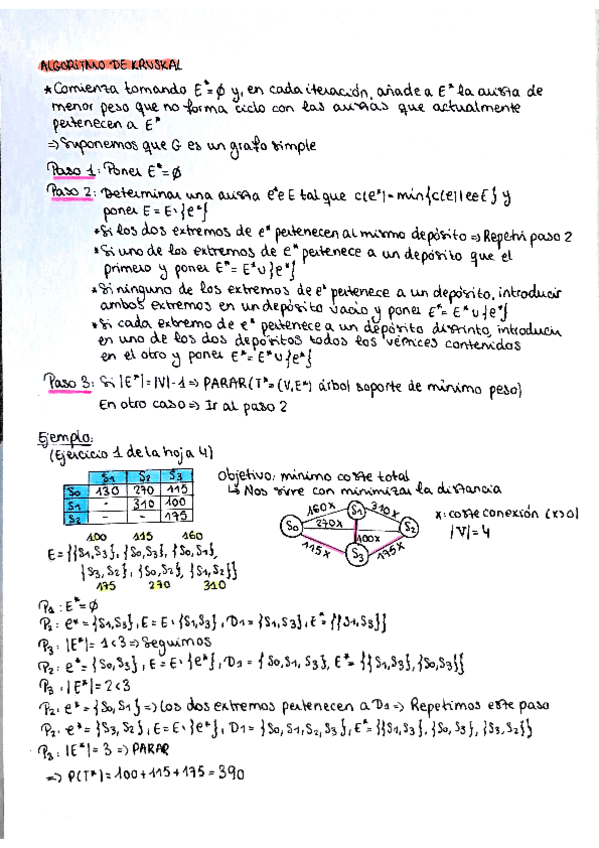 ALGORITMO DE KRUSKAL
*Comienza tomando E*=∅ y, en cada iteración, añade a E* la arista de
menor peso que no forma ciclo con las aristas que actualmente
pertenecen a E*
⇒ Suponemos que G es un grafo simple
Paso 1: Poner E*=∅
Paso 2: Determinar una arista e*∈E tal que c(e*)=min{c(e)|e∈E} y
poner E=E\{e*}
*Si los dos extremos de e* pertenecen al mismo depósito ⇒ Repetir paso 2
*Si uno de los extremos de e* pertenece a un depósito que el
primero y poner E*=E*∪{e*}
*Si ninguno de los extremos de e* pertenece a un depósito, introducir
ambos extremos en un depósito vacío y poner E*=E*∪{e*}
*Si cada extremo de e* pertenece a un depósito distinto, introducir
en uno de los dos depósitos todos los vértices contenidos
en el otro y poner E*=E*∪{e*}
Paso 3: Si |E*|=|V|-1 ⇒ PARAR (T*=(V,E*) árbol soporte de mínimo peso)
En otro caso ⇒ Ir al paso 2
Ejemplo:
(Ejercicio 1 de la hoja 4)
S1 S2 S3
S0 130 270 115
S1 - 310 100
S2 - - 175
Objetivo: mínimo coste total
↳ Nos sirve con minimizar la distancia
S0 S1 S2 S3
160x 310x
270x 100x
115x 175x
x: coste conexión (x>0)
|V|=4
100 115 160
E={{S1,S3}, {S0,S3}, {S0,S1},
{S3,S2}, {S0,S2}, {S1,S2}}
175 270 310
P1: E*=∅
P2: e*={S1,S3}, E=E\{S1,S3}, D1={S1,S3}, E*={{S1,S3}}
P3: |E*|=1<3 ⇒ Seguimos
P2: e*={S0,S3}, E=E\{e*}, D1={S0,S1,S3}, E*={{S1,S3},{S0,S3}}
P3: |E*|=2<3
P2: e*={S0,S1} ⇒ Los dos extremos pertenecen a D1 ⇒ Repetimos este paso
P2: e*={S3,S2}, E=E\{e*}, D1={S0,S1,S2,S3}, E*={{S1,S3},{S0,S3},{S3,S2}}
P3: |E*|=3 ⇒ PARAR
⇒ P(T*)=100+115+175=390